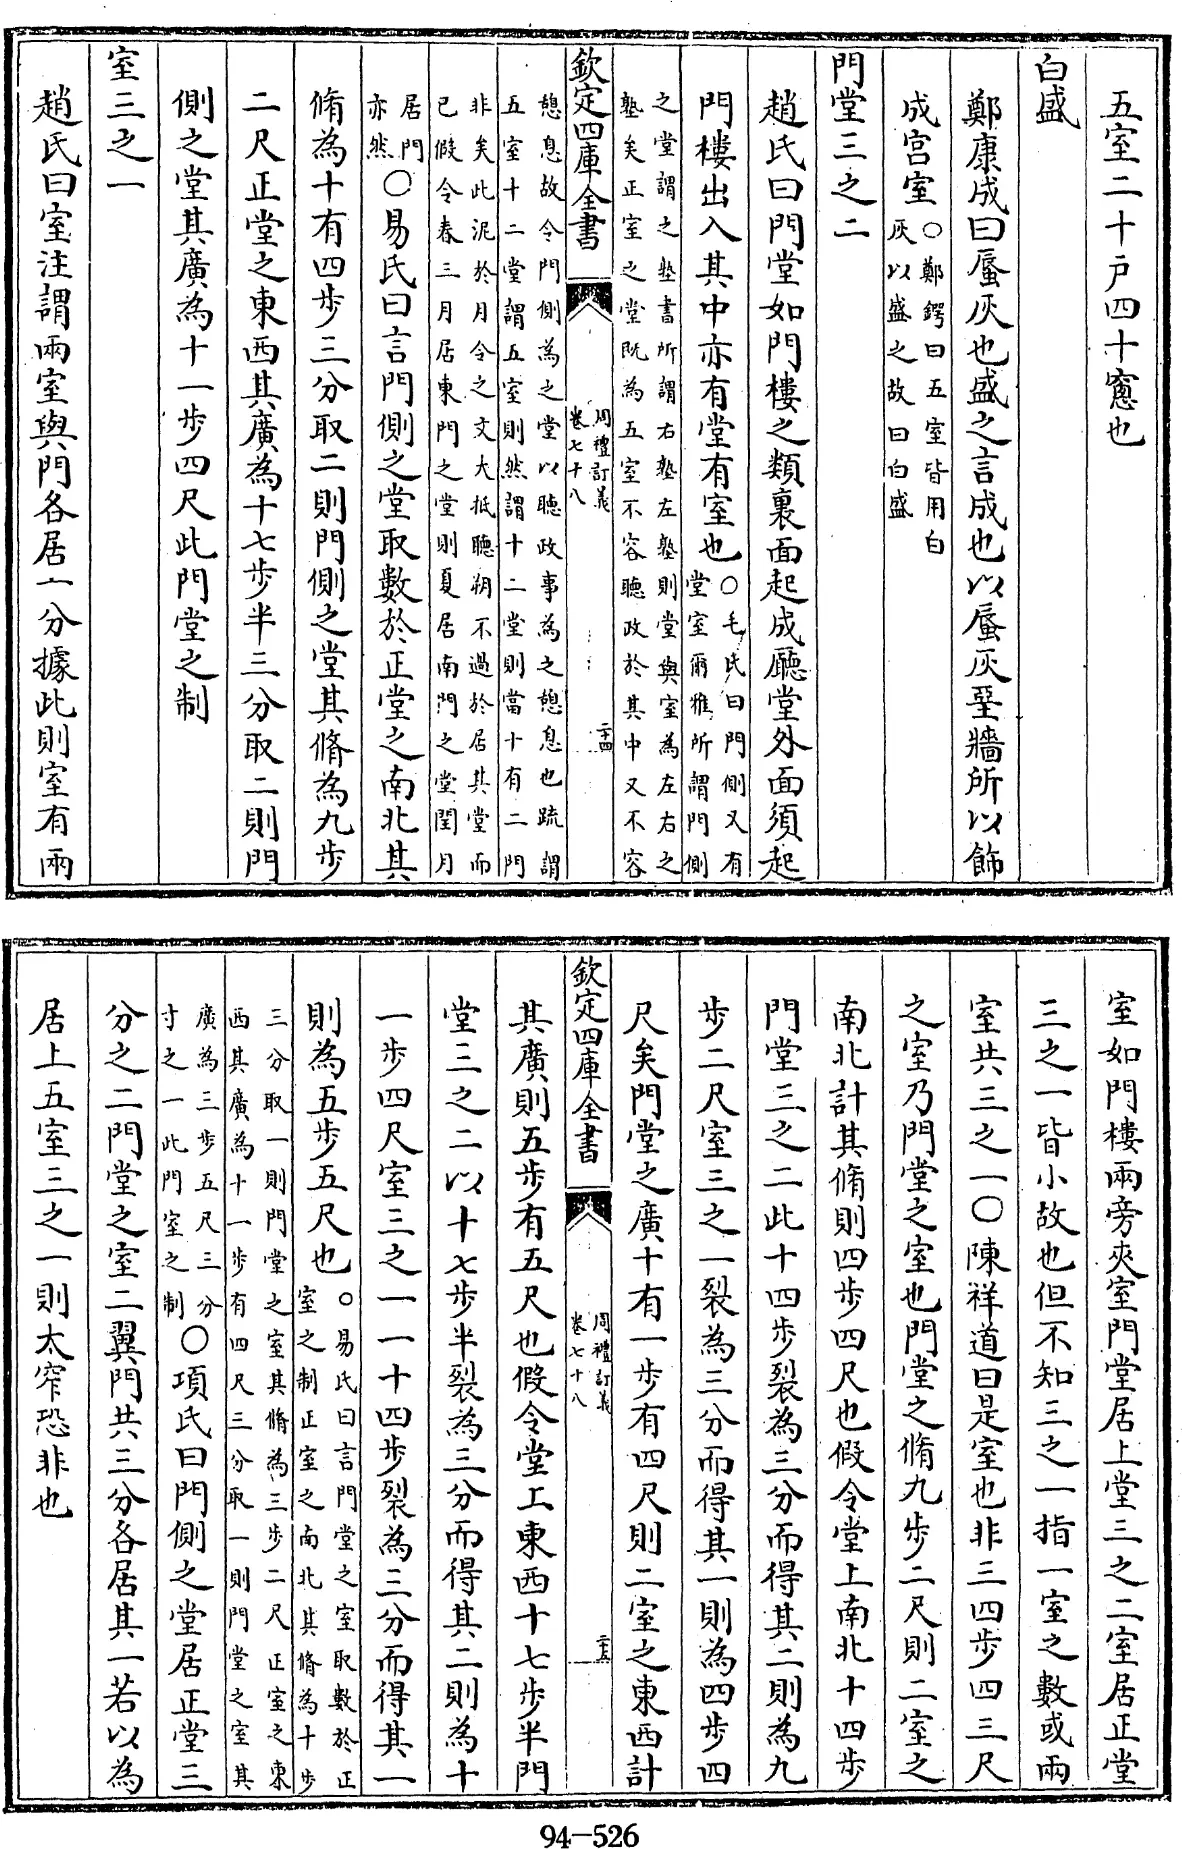 五室二十戶四十窻也
白盛
鄭康成曰蜃灰也盛之言成也以蜃灰堊牆所以飾
成宮室〇鄭鍔曰五室皆用白
灰以盛之故曰白盛
門堂三之二
趙氏曰門堂如門樓之類裏面起成廳堂外面須起
門樓出入其中亦有堂有室也〇毛氏曰門側又有
堂室爾雅所謂門側
之堂謂之塾書所謂右塾左塾則堂與室為左右之
塾矣正室之堂既為五室不容聽政於其中又不容
欽定四庫全書
周禮訂義
卷七十八
二十四
憩息故令門側為之堂以聽政事為之憩息也疏謂
五室十二堂謂五室則然謂十二堂則當十有二門
非矣此泥於月令之文大抵聽朔不過於居其堂而
已假令春三月居東門之堂則夏居南門之堂閏月
居門
亦然〇易氏曰言門側之堂取數於正堂之南北其
脩為十有四步三分取二則門側之堂其脩為九步
二尺正堂之東西其廣為十七步半三分取二則門
側之堂其廣為十一步四尺此門堂之制
室三之一
趙氏曰室注謂兩室與門各居一分據此則室有兩
室如門樓兩旁夾室門堂居上堂三之二室居正堂
三之一皆小故也但不知三之一指一室之數或兩
室共三之一〇陳祥道曰是室也非三四步四三尺
之室乃門堂之室也門堂之脩九步二尺則二室之
南北計其脩則四步四尺也假令堂上南北十四步
門堂三之二此十四步裂為三分而得其二則為九
步二尺室三之一裂為三分而得其一則為四步四
尺矣門堂之廣十有一步有四尺則二室之東西計
欽定四庫全書
周禮訂義
卷七十八
二十五
其廣則五步有五尺也假令堂工東西十七步半門
堂三之二以十七步半裂為三分而得其二則為十
一步四尺室三之一一十四步裂為三分而得其一
則為五步五尺也〇易氏曰言門堂之室取數於正
室之制正室之南北其脩為十步
三分取一則門堂之室其脩為三步二尺正室之東
西其廣為十一步有四尺三分取一則門堂之室其
廣為三步五尺三分
寸之一此門室之制〇項氏曰門側之堂居正堂三
分之二門堂之室二翼門共三分各居其一若以為
居上五室三之一則太窄恐非也
94-526